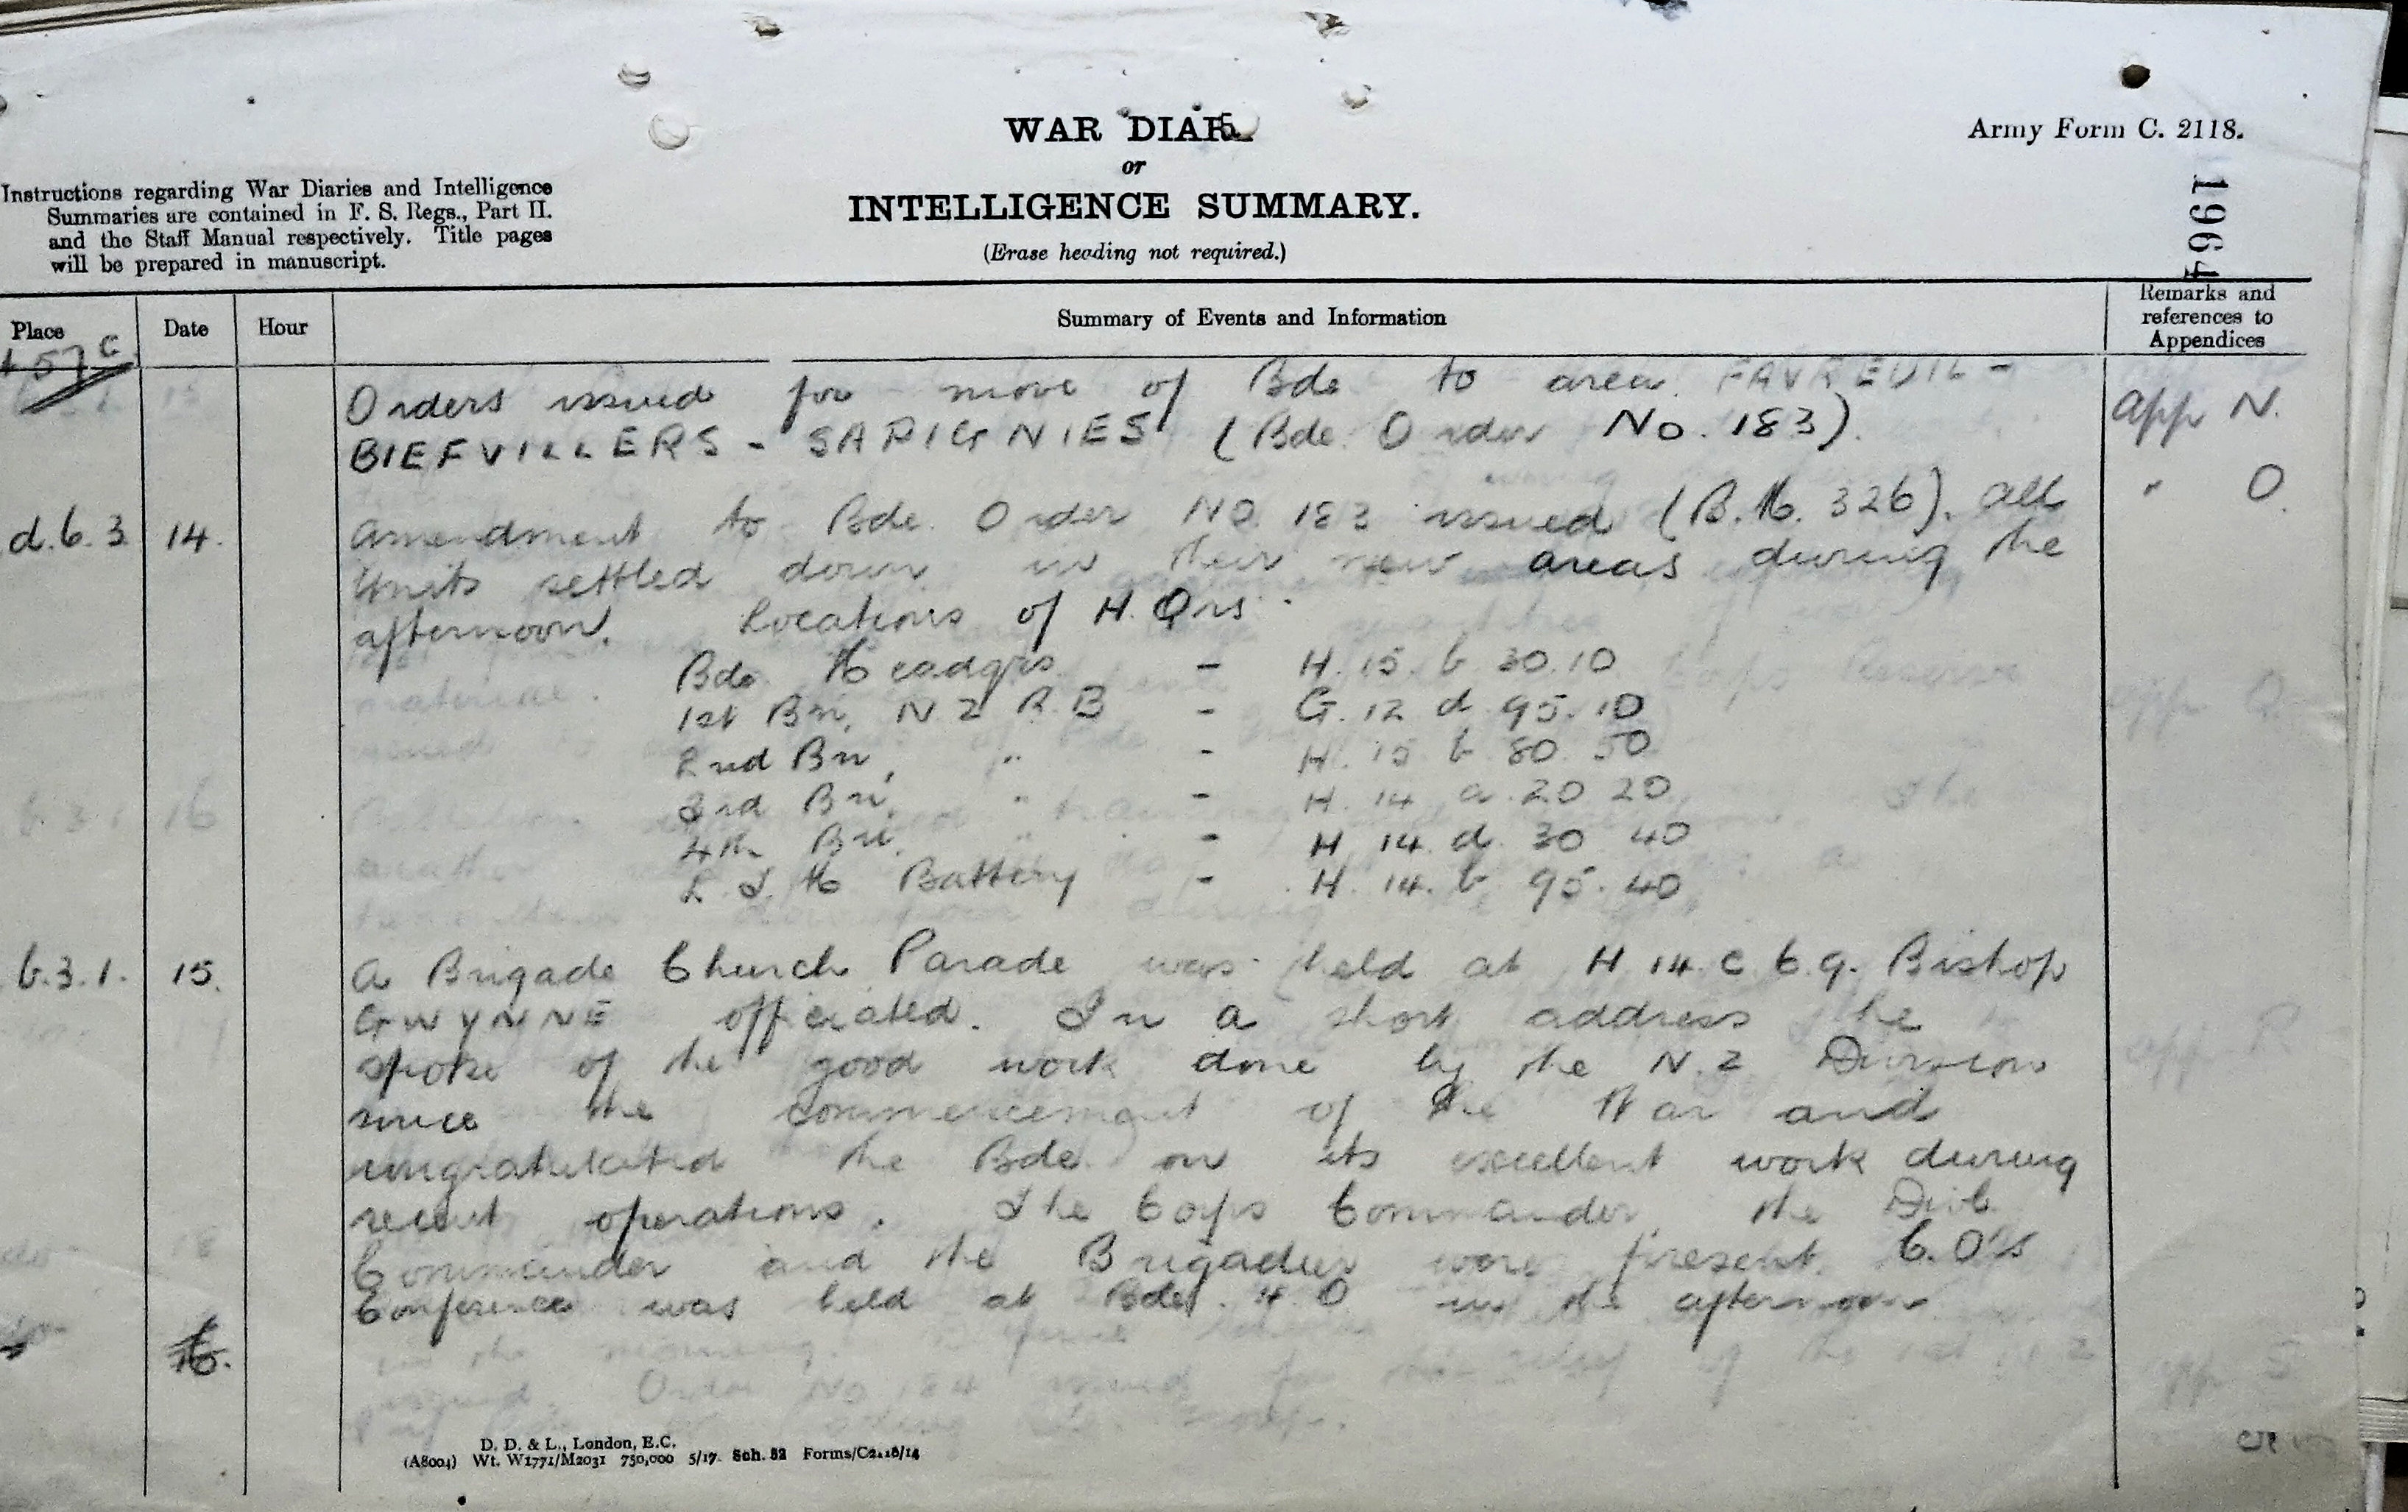 WAR DIAR
or
INTELLIGENCE SUMMARY.
(Erase heading not required.)
Army Form C. 2118.
1964
Instructions regarding War Diaries and Intelligence
Summaries are contained in F. S. Regs., Part II.
and the Staff Manual respectively. Title pages
will be prepared in manuscript.
Place Date Hour Summary of Events and Information Remarks and references to Appendices
57 c
Orders issued for move of Bde to area FAVREUIL - app N.
BIEFVILLERS - SAPIGNIES (Bde. Order No. 183).
d.6.3 14. Amendment to Bde. Order No. 183 issued (B.M. 326). All " O.
Units settled down in their new areas during the
afternoon. Locations of H.Qrs.
Bde Headqrs - H.15.b 30.10
1st Bn, N Z R.B - G.12 d 95.10
2nd Bn, " - H.15 b 80 50
3rd Bn, " - H.14 a 20 20
4th Bn, " - H 14 d 30 40
L.T.M Battery - H.14.b 95.40
b.3.1. 15. A Brigade Church Parade was held at H 14 c 6.9. Bishop
GWYNNE officiated. In a short address he
spoke of the good work done by the N.Z Division
since the commencement of the War and
congratulated the Bde on its excellent work during
recent operations. The Corps Commander, the Divl.
Commander and the Brigadier were present. C.O's
Conference was held at Bde. H.Q in the afternoon
16.
D. D. & L., London, E.C.
(A8004) Wt. W1771/M2031 750,000 5/17. Sch. 52 Forms/C2118/14